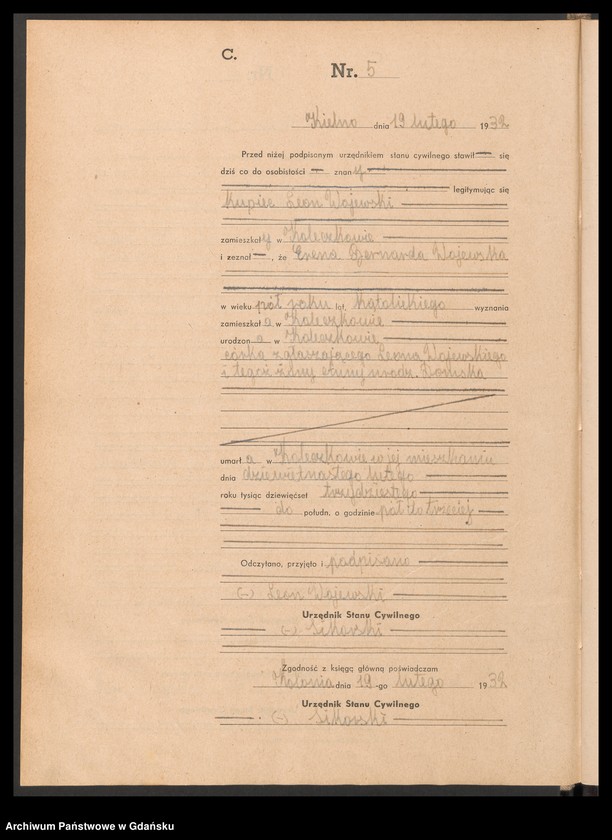 C.
Nr. 5
Kielno dnia 19 lutego 1932
Przed niżej podpisanym urzędnikiem stanu cywilnego stawił się
dziś co do osobistości znany
legitymując się
kupiec Leon Wojewski
zamieszkały w Koleczkowie
i zeznał, że Irena Gernarda Wojewska
w wieku pół roku lat, katolickiego wyznania
zamieszkała w Koleczkowie
urodzona w Koleczkowie
córka zgłaszającego Leona Wojewskiego
i tegoż żony urodz.
umarła w Koleczkowie w jej mieszkaniu
dnia dziewiętnastego lutego
roku tysiąc dziewięćset trzydziestego
do połudn. o godzinie pół do trzeciej
Odczytano, przyjęto i podpisano
(-) Leon Wojewski
Urzędnik Stanu Cywilnego
(-) Sikorski
Zgodność z księgą główną poświadczam
dnia 19-go lutego 1932
Urzędnik Stanu Cywilnego
(-) Sikorski
Archiwum Państwowe w Gdańsku